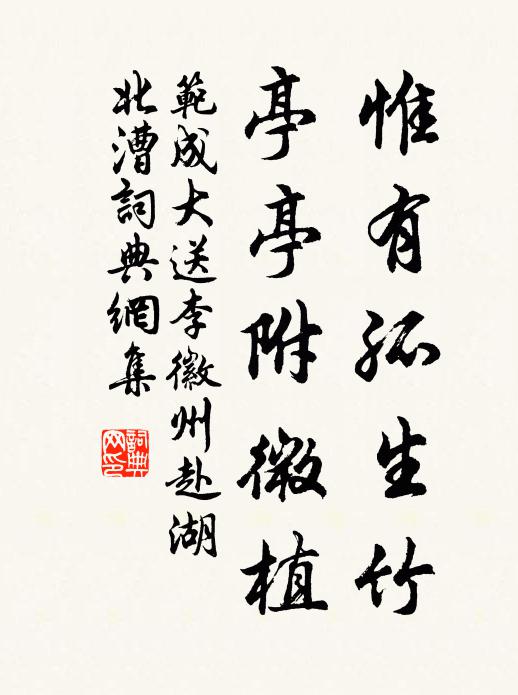 惟有孤生竹
亭亭附微植
範成大送李徽州赴湖
北漕詞典網集
詞典网印